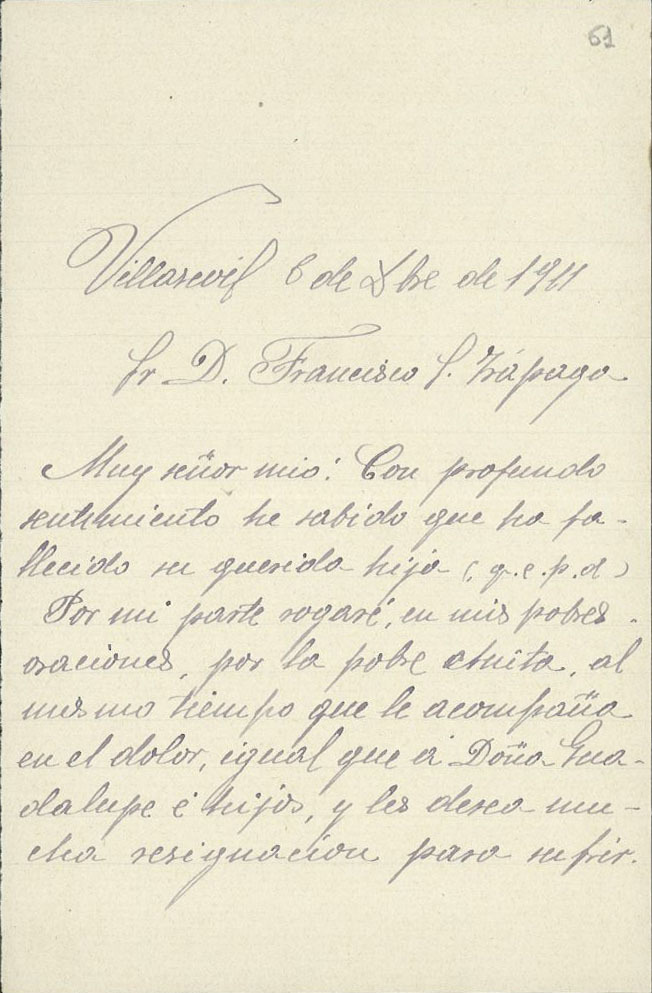 61
Villasevil 6 de Xbre de 1911
Sr D. Francisco S. Trápaga
Muy señor mio: Con profundo
sentimiento he sabido que ha fa-
llecido su querida hija (q.e.p.d)
Por mi parte rogaré, en mis pobres
oraciones, por la pobre Anita, al
mismo tiempo que le acompaña
en el dolor, igual que á Doña Gua-
dalupe é hijos, y les desea mu-
cha resignacion para sufrir.